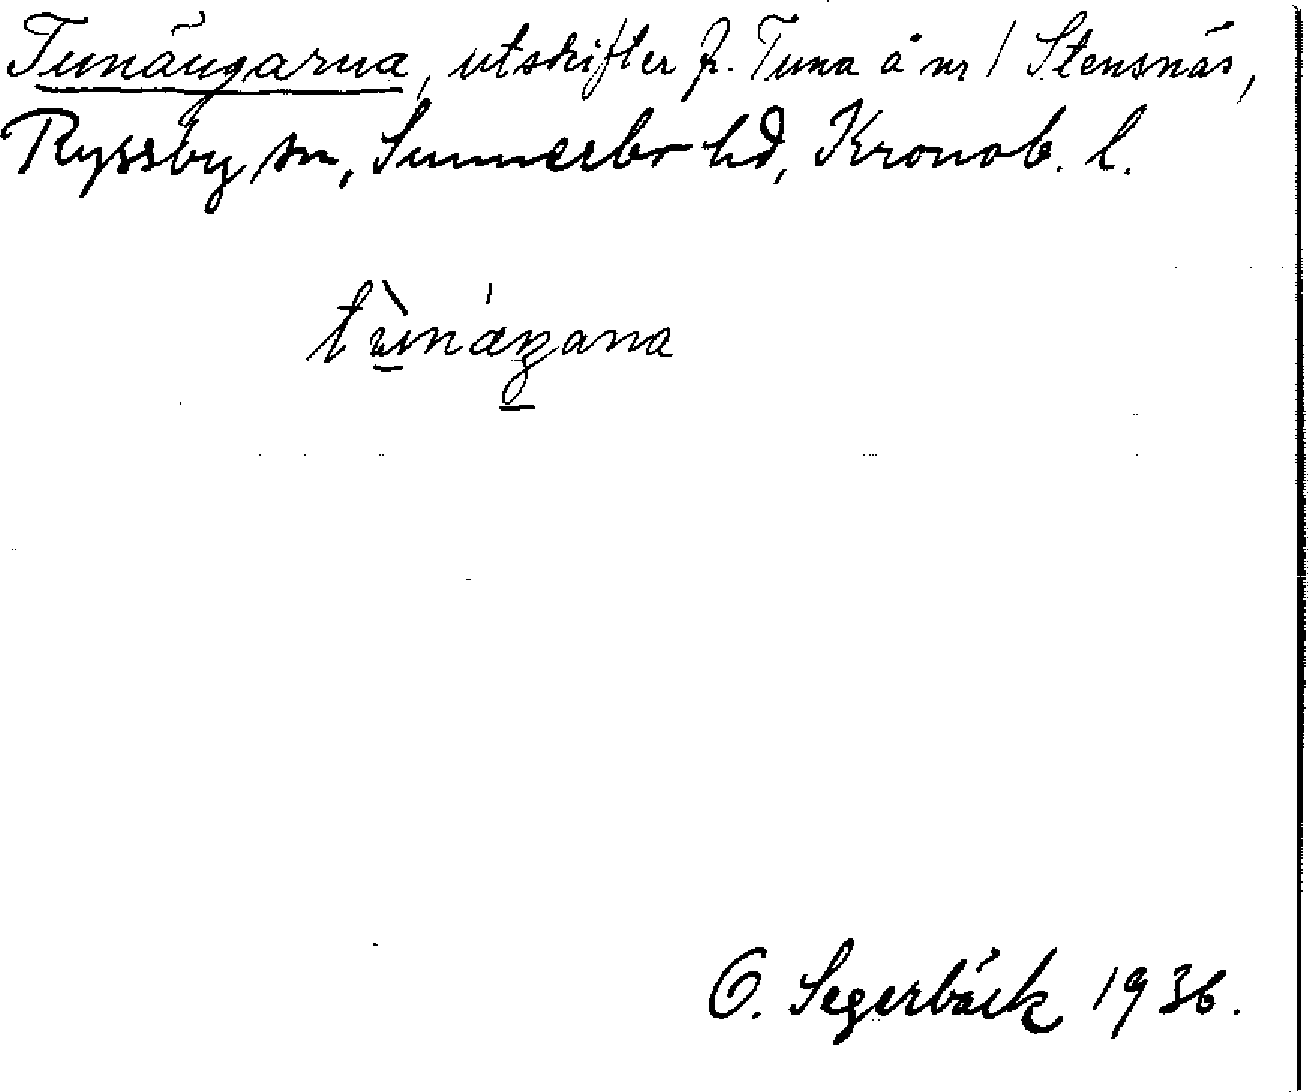 Tunängarna, utskifter fr. Tuna å nr 1 Stensnäs,
Ryssby sn, Sunnerbo hd, Kronob. l.
O. Segerbäck 1936.